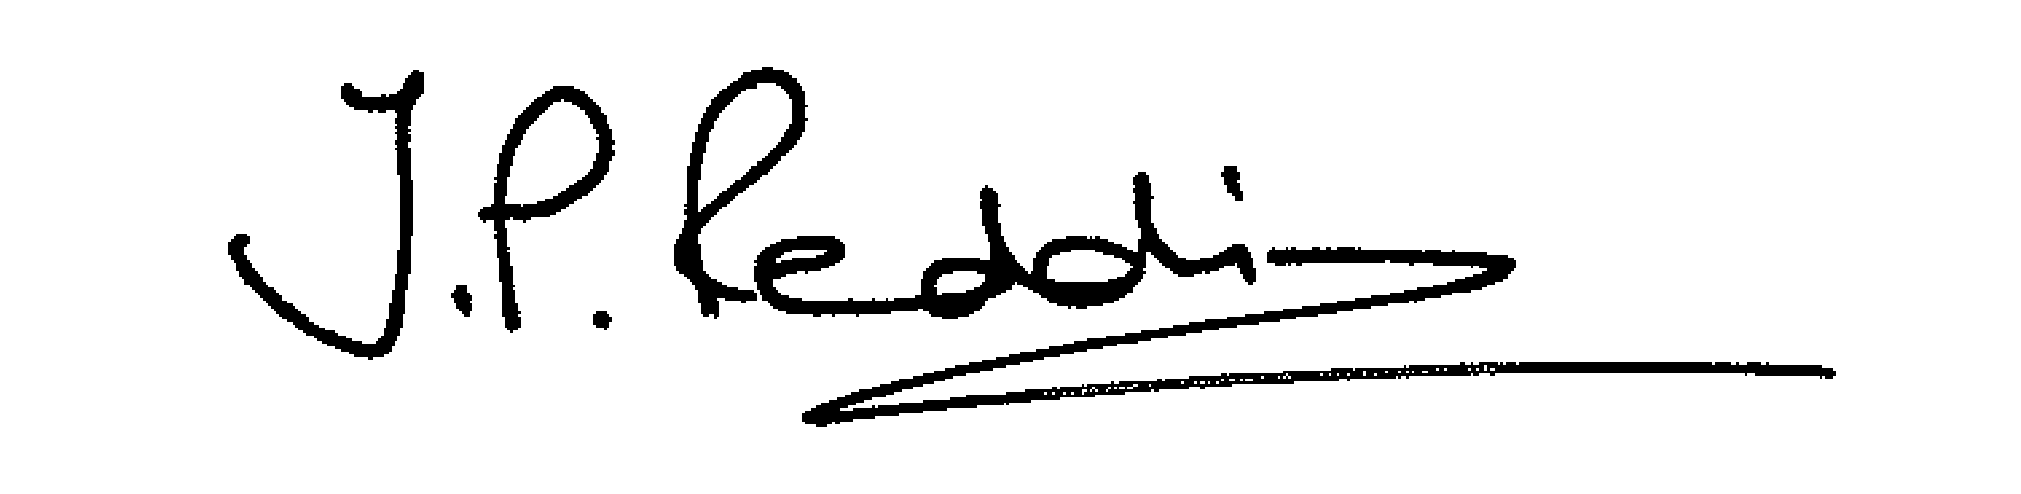 J.P. Reddi